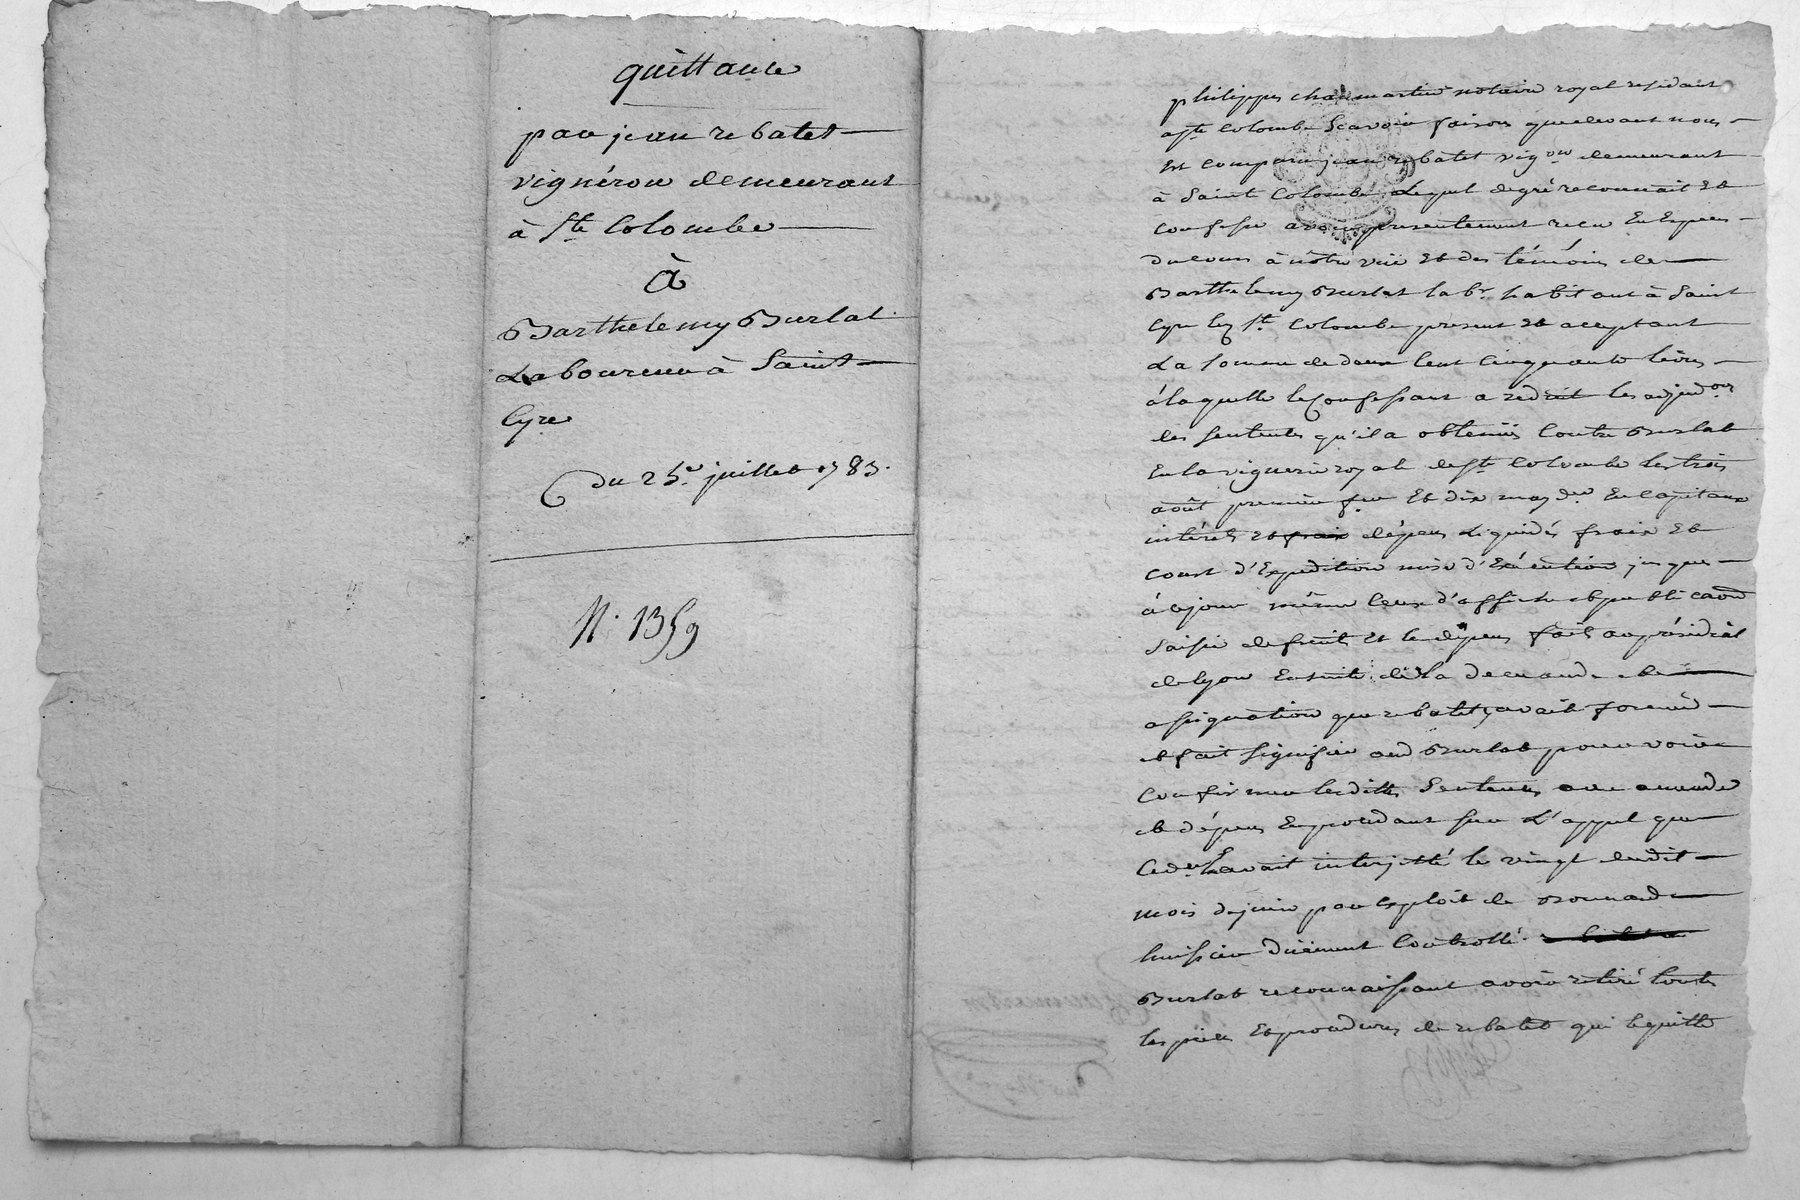 quittance
par jean rebatet
vignéron demeurant
à Ste Colombe
à
Barthelemy Burlat
Laboureur à Saint
Cyre
du 25e juillet 1783.
N. 1359
philippe chaumartin notaire royal residant
a Ste Colombe Scavoir faisons que devant nous
Est comparu jean rebatet vigon demeurant
à Saint Colombe Lequel de gré reconnait et
confesse avoir presentement recu En Especes
du cours à nôtre vüe et des témoins de
Barthelemy Burlat labr. habitant à Saint
Cyre lez Ste Colombe present et acceptant
La Somme de deux Cent Cinquante livres
à laquelle le Confessant a reduit les adjudons
des Sentences qu'il a obtenües Contre Burlat
En la viguerie royale de Ste Colombe les trois
août premier et dix may der En Capitaux
intérêts et frais dépens Liquidés frais et
coust d'Expedition mise d'Exécution jusques
à ce jour même Ceux d'affiche et publicaon
Saisie de fruits et les dépens faits au présidial
de lyon Ensuite de la demande et
assignation que rebatet avait formé
et fait Signifier aud Burlat pour voir
Confirmer lesdittes Sentences avec amende
et dépens En procedant Sur L'appel que
Ce der. avait interjetté le vingt dudit
mois de juin par Exploit de Bonnard
huissier düement Controllé
Burlat reconnaissant avoir retiré touts
les pieces Et procedures de rebatet qui le quitte